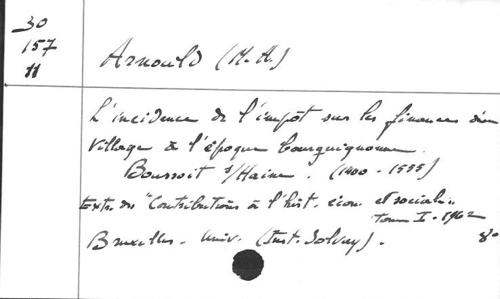 30
157
11
Arnould (M. A.)
L'incidence de l'impôt sur les finances d'un
village à l'époque bourguignonne.
Boussoit s/Haine. (1400 - 1555)
Extr. des "Contributions à l'hist. écon. et sociale".
tome I. 1962
Bruxelles. Univ. (Inst. Solvay).
8°